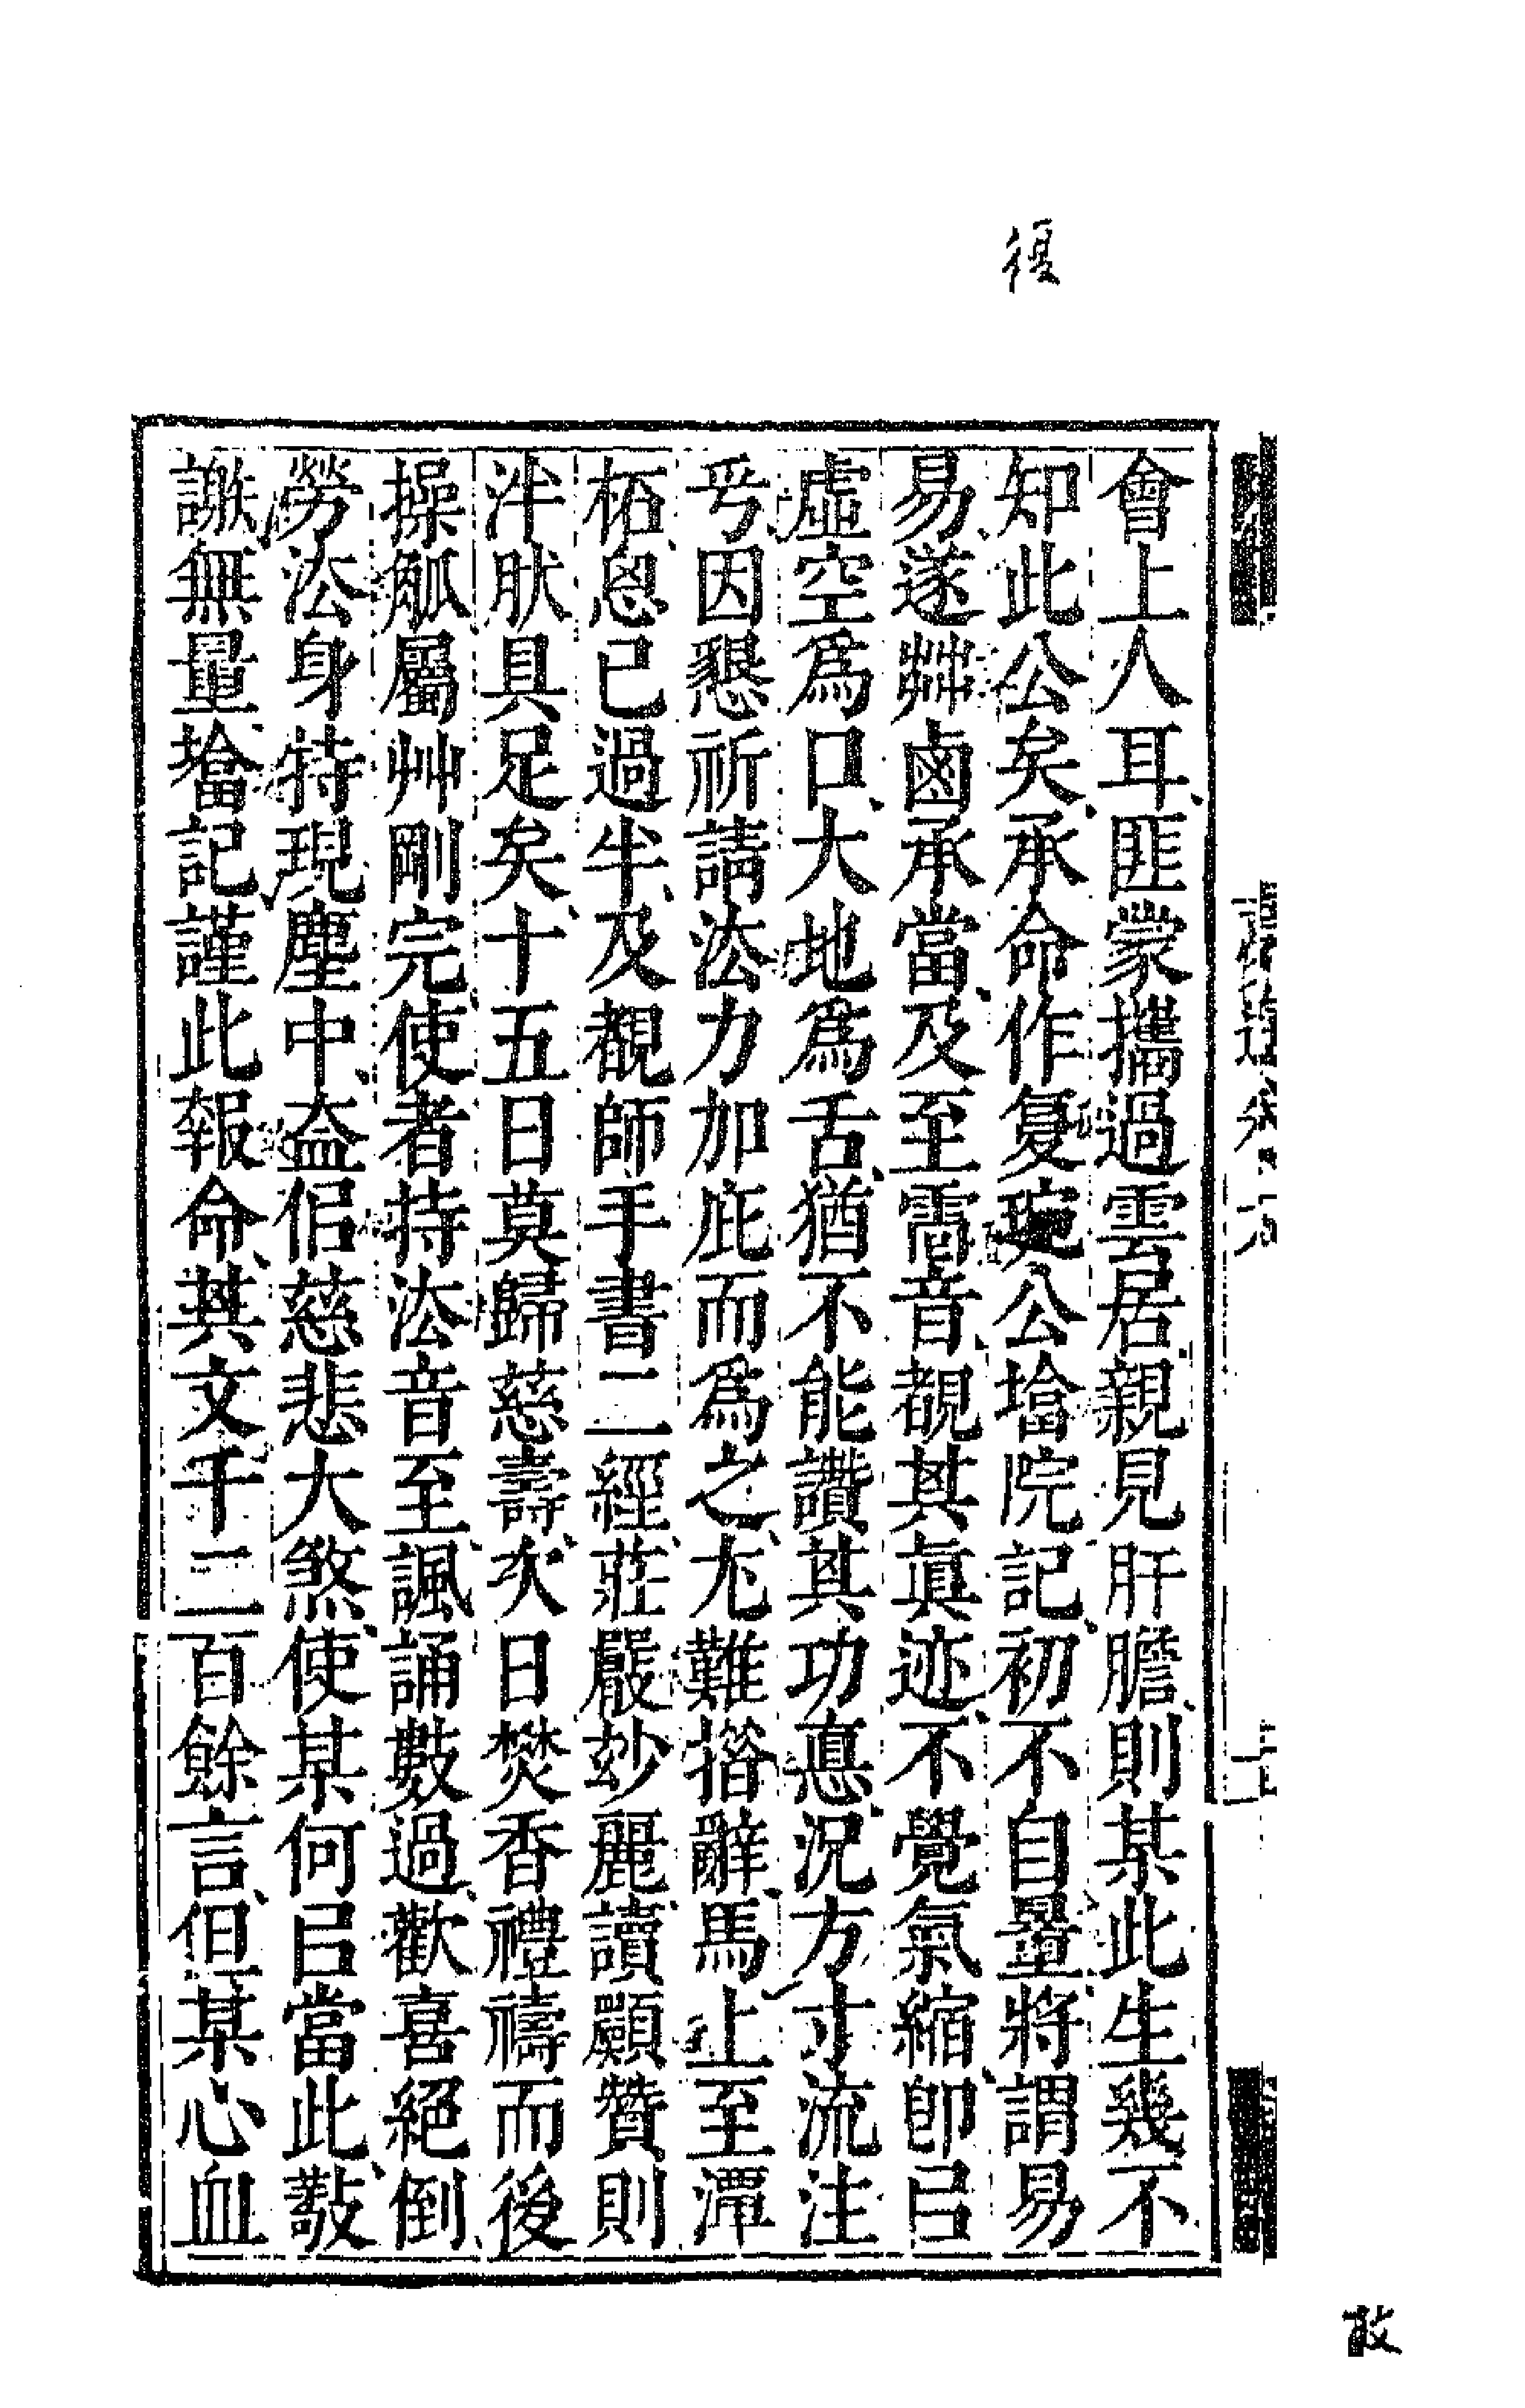 復
會上人耳匪蒙攜過雲居親見肝膽則某此生幾不
知此公矣承命作夐琬公墖院記初不自量將謂易
易遂𦯧鹵承當及至䨲音覩其眞迹不覺氣縮即㠯
虛空爲口大地爲舌猶不能讚其功悳況方寸流注
乎因懇祈請法力加庇而爲之尤難措辭焉止至潭
柘恖已過半及覩師手書二經莊嚴玅麗讀願贊則
汼肰具足矣十五日莫歸慈壽次日焚香禮禱而後
操觚屬艸剛完使者持法音至諷誦數過歡喜絕倒
勞法身特現塵中葢侶慈悲大煞使某何㠯當此敬
謝無量墖記謹此報命其文千二百餘言但某心血